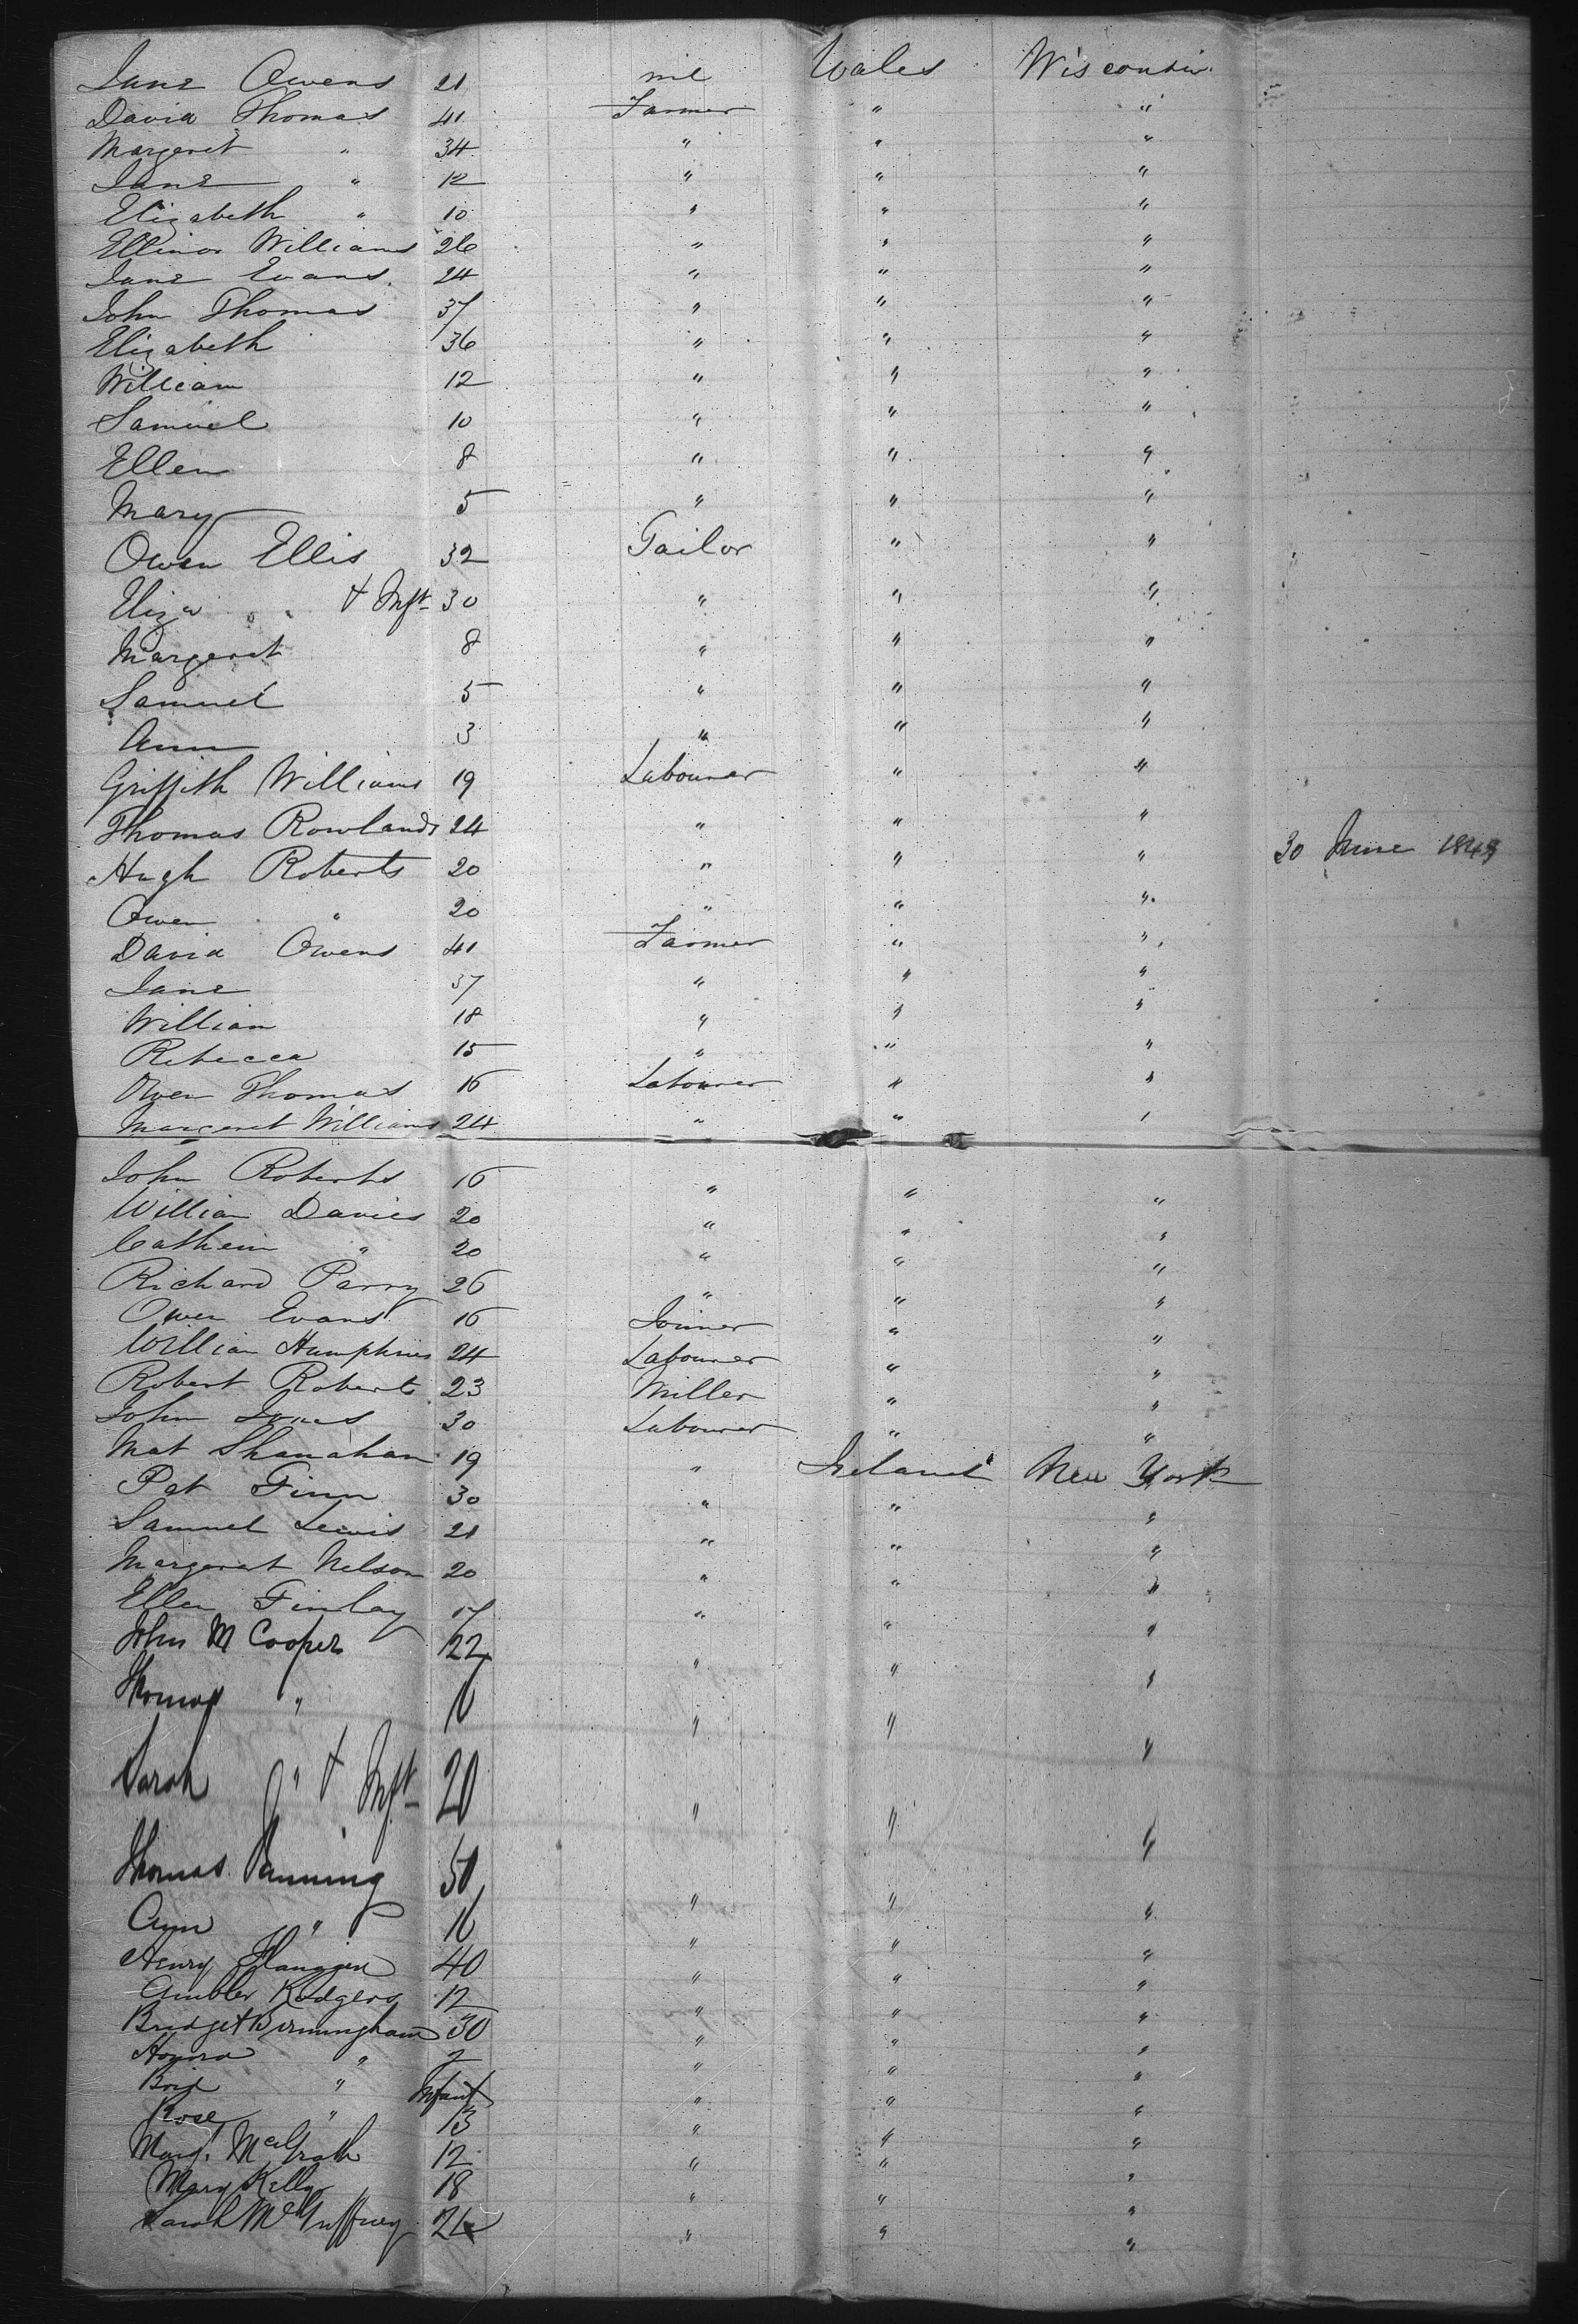 Jane Owens 21 nil Wales Wisconsin
David Thomas 41 Farmer " "
Margeret " 34 " " "
Jane " 12 " " "
Elizabeth " 10 " " "
Ellinor Williams 26 " " "
Jane Evans 24 " " "
John Thomas 37 " " "
Elizabeth 36 " " "
William 12 " " "
Samuel 10 " " "
Ellen 8 " " "
Mary 5 " " "
Owen Ellis 32 Tailor " "
Eliza " & Inft 30 " " "
Margeret 8 " " "
Samuel 5 " " "
Ann 3 " " "
Griffith Williams 19 Labourer " "
Thomas Rowlands 24 " " "
Hugh Roberts 20 " " " 30 June 1848
Owen " 20 " " "
David Owens 41 Farmer " "
Jane 37 " " "
William 18 " " "
Rebecca 15 " " "
Owen Thomas 16 Labourer " "
Margeret Williams 24 " " "
John Roberts 16 " " "
William Davies 20 " " "
Cathein " 20 " " "
Richard Parry 26 " " "
Owen Evans 16 Joiner " "
William Humphries 24 Labourer " "
Robert Roberts 23 Miller " "
John Jones 30 Labourer " "
Mat Shanahan 19 " Ireland New York
Pat Finn 30 " " "
Samuel Lewis 21 " " "
Margeret Nelson 20 " " "
Ellen Finlay 17 " " "
John M Cooper 22 " " "
Thomas " 16 " " "
Sarah " & Inft 20 " " "
Thomas Panning 50 " " "
Ann " 16 " " "
Henry Flanggen 40 " " "
Ambler Rodgers 12 " " "
Bridget Birmingham 30 " " "
Honora " 2 " " "
Brid " Infant " " "
Rose " 13 " " "
Margt. McGrath 12 " " "
Mary Kelly 18 " " "
Sarah 21 " " "